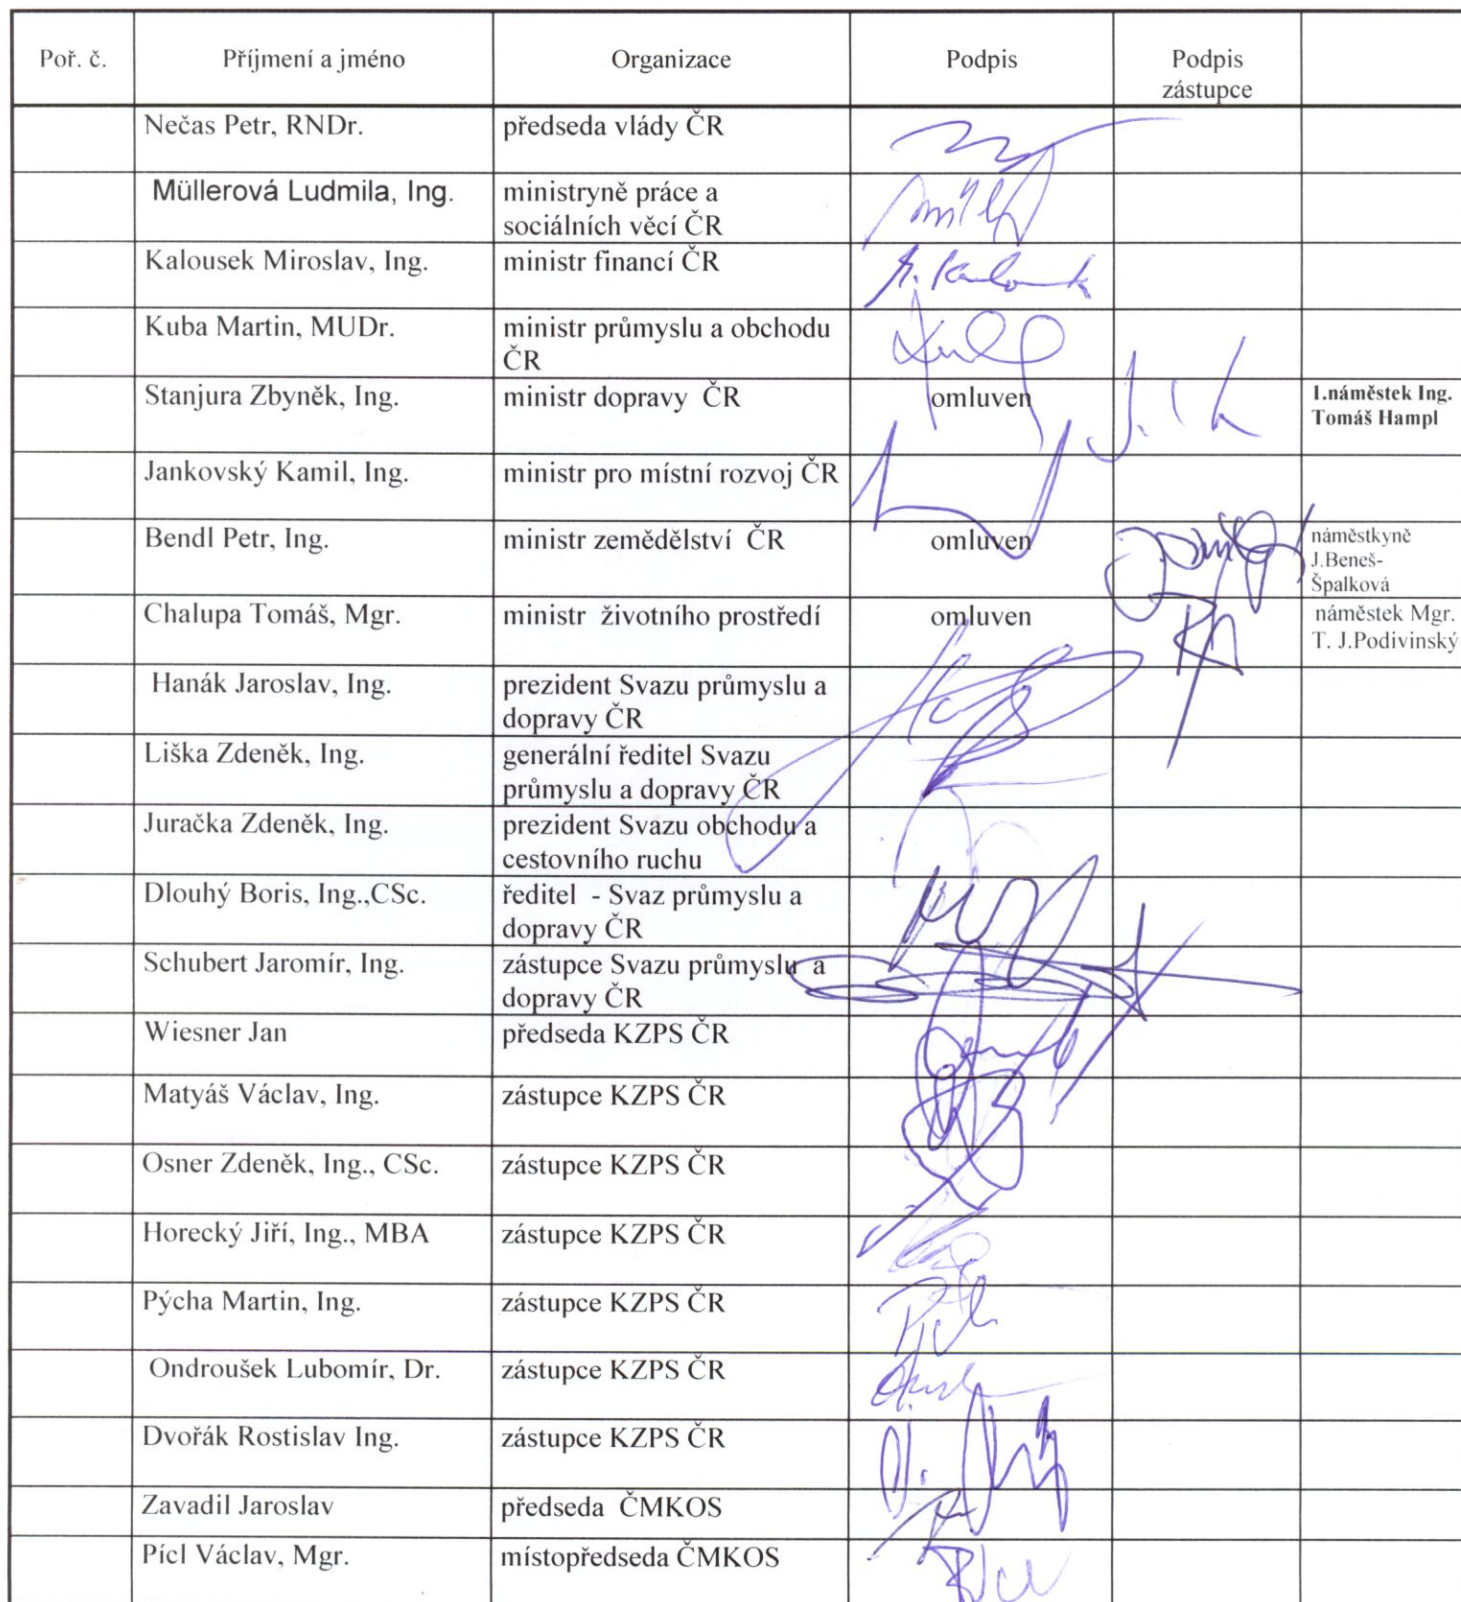 Poř. č. Příjmení a jméno Organizace Podpis Podpis
zástupce
Nečas Petr, RNDr. předseda vlády ČR
Müllerová Ludmila, Ing. ministryně práce a
sociálních věcí ČR
Kalousek Miroslav, Ing. ministr financí ČR
Kuba Martin, MUDr. ministr průmyslu a obchodu
ČR
Stanjura Zbyněk, Ing. ministr dopravy ČR omluven 1.náměstek Ing.
Tomáš Hampl
Jankovský Kamil, Ing. ministr pro místní rozvoj ČR
Bendl Petr, Ing. ministr zemědělství ČR omluven náměstkyně
J.Beneš-
Špalková
Chalupa Tomáš, Mgr. ministr životního prostředí omluven náměstek Mgr.
T. J.Podivinský
Hanák Jaroslav, Ing. prezident Svazu průmyslu a
dopravy ČR
Liška Zdeněk, Ing. generální ředitel Svazu
průmyslu a dopravy ČR
Juračka Zdeněk, Ing. prezident Svazu obchodu a
cestovního ruchu
Dlouhý Boris, Ing.,CSc. ředitel - Svaz průmyslu a
dopravy ČR
Schubert Jaromír, Ing. zástupce Svazu průmyslu a
dopravy ČR
Wiesner Jan předseda KZPS ČR
Matyáš Václav, Ing. zástupce KZPS ČR
Osner Zdeněk, Ing., CSc. zástupce KZPS ČR
Horecký Jiří, Ing., MBA zástupce KZPS ČR
Pýcha Martin, Ing. zástupce KZPS ČR
Ondroušek Lubomír, Dr. zástupce KZPS ČR
Dvořák Rostislav Ing. zástupce KZPS ČR
Zavadil Jaroslav předseda ČMKOS
Pícl Václav, Mgr. místopředseda ČMKOS